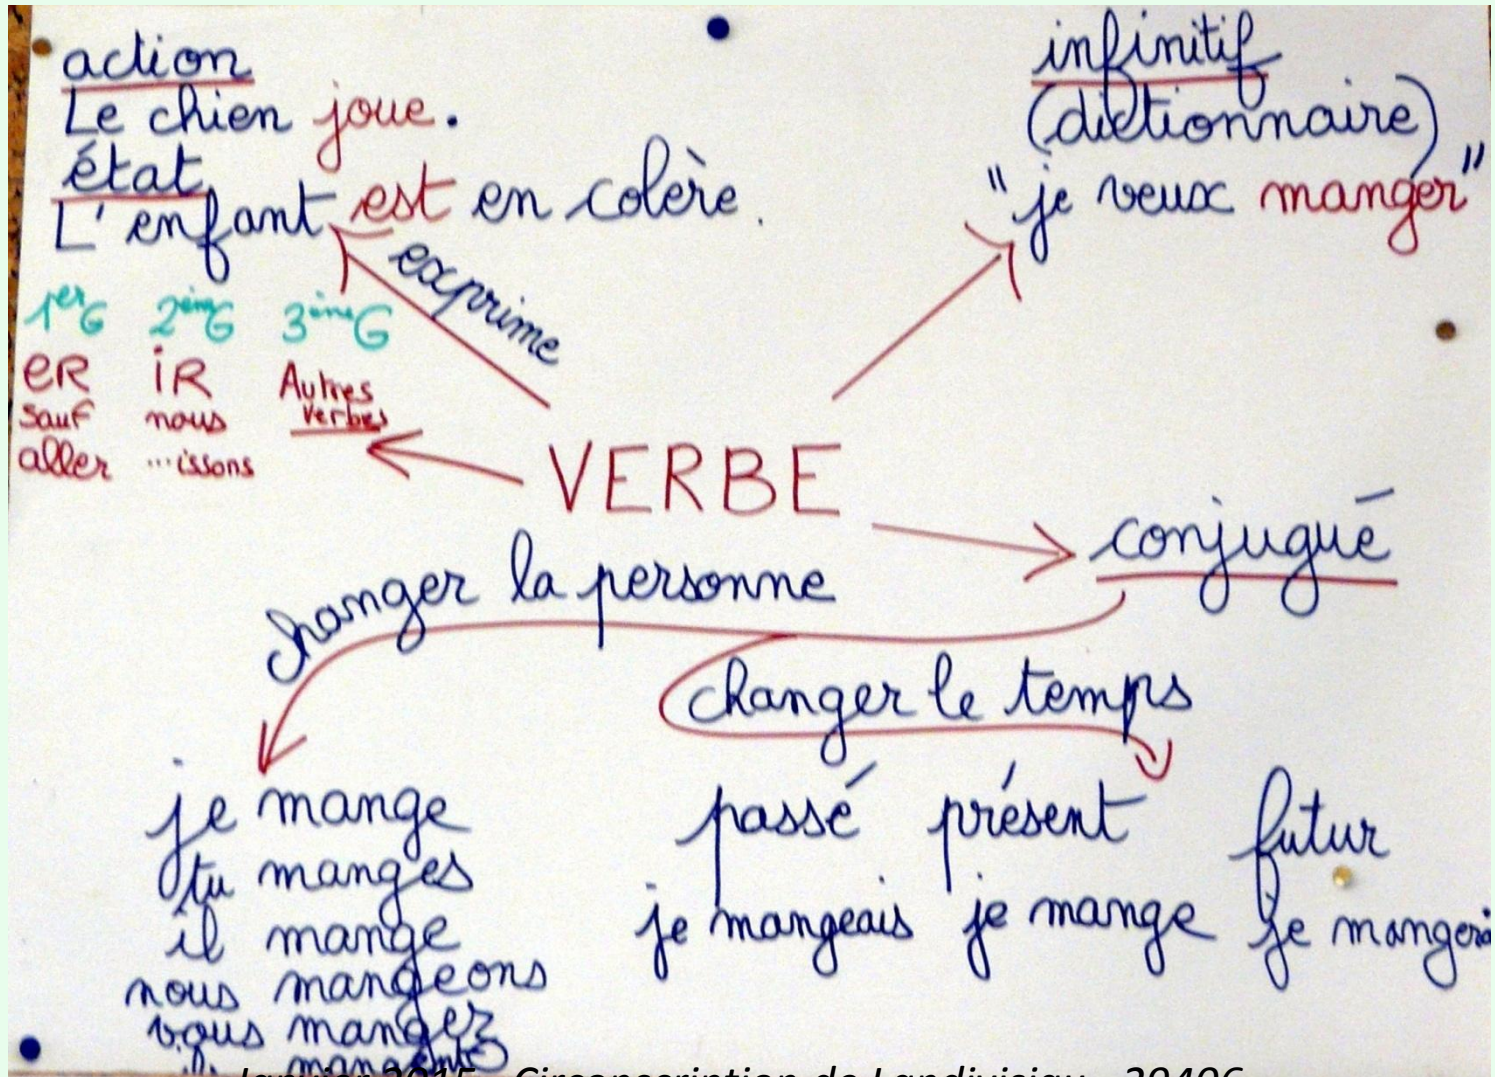 action
Le chien joue.
état
L'enfant est en colère.
exprime
infinitif
(dictionnaire)
"je veux manger"
1er G 2ème G 3ème G
ER iR Autres
sauf nous verbes
aller ...issons
VERBE
conjugué
changer la personne
changer le temps
je mange
tu manges
il mange
nous mangeons
vous mangez
mangent
passé présent futur
je mangeais je mange je mangerai
Janvier 2015 - Circonscription de Landivisiau - 29406